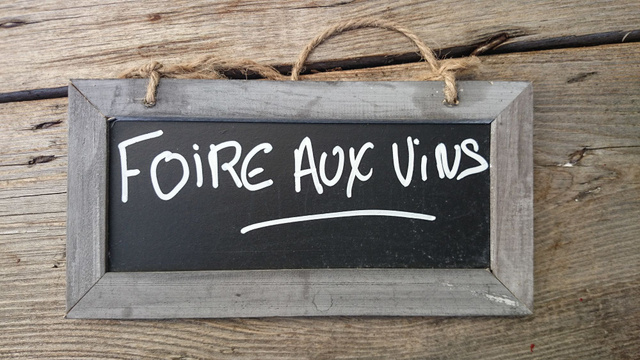 FOIRE AUX ViNS